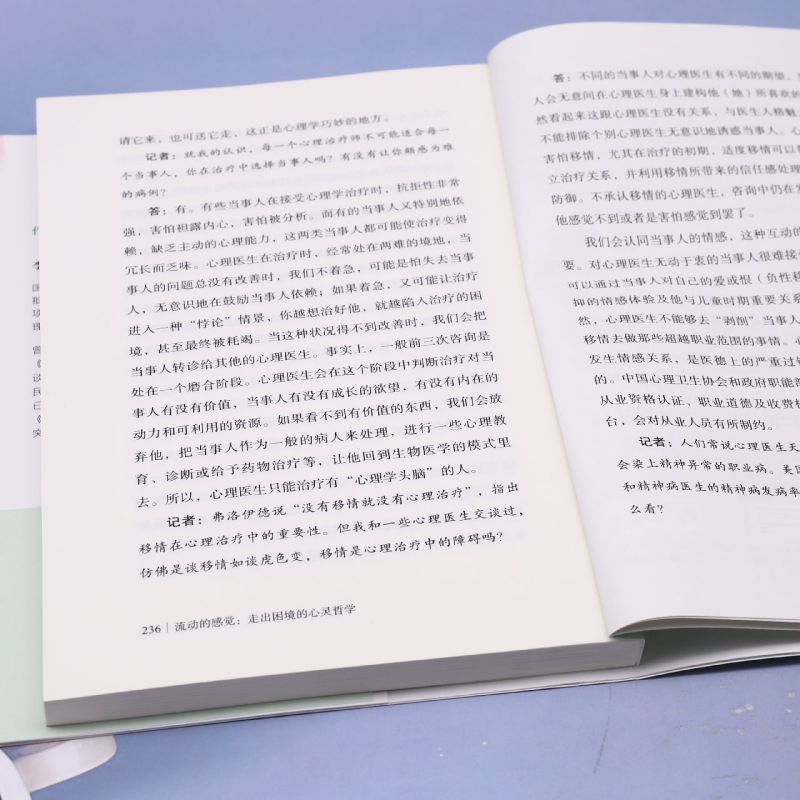 请它来，也可送它走，这正是心理学巧妙的地方。
记者：就我的认识，每一个心理治疗师不可能适合每一
个当事人，你在治疗中选择当事人吗？有没有让你颇感为难
的病例？
答：有。有些当事人在接受心理学治疗时，抗拒性非常
强，害怕袒露内心，害怕被分析。而有的当事人又特别地依
赖，缺乏主动的心理能力，这两类当事人都可能使治疗变得
冗长而乏味。心理医生在治疗时，经常处在两难的境地，当
事人的问题总没有改善时，我们不着急，可能是怕失去当事
人，无意识地在鼓励当事人依赖；如果着急，又可能让治疗
进入一种“悖论”情景，你越想治好他，就越陷人治疗的困
境，甚至最终被耗竭。当这种状况得不到改善时，我们会把
当事人转诊给其他的心理医生。事实上，一般前三次咨询是
处在一个磨合阶段。心理医生会在这个阶段中判断治疗对当
事人有没有价值，当事人有没有成长的欲望，有没有内在的
动力和可利用的资源。如果看不到有价值的东西，我们会放
弃他，把当事人作为一般的病人来处理，进行一些心理教
育、诊断或给予药物治疗等，让他回到生物医学的模式里
去。所以，心理医生只能治疗有“心理学头脑”的人。
记者：弗洛伊德说“没有移情就没有心理治疗”，指出
移情在心理治疗中的重要性。但我和一些心理医生交谈过，
仿佛是谈移情如谈虎色变，移情是心理治疗中的障碍吗？
236 | 流动的感觉：走出困境的心灵哲学
答：不同的当事人对心理医生有不同的期望，
人会无意间在心理医生身上建构他（她）所喜欢的
然看起来这跟心理医生没有关系，与医生人格魅
不能排除个别心理医生无意识地诱惑当事人。心
害怕移情，尤其在治疗的初期，适度移情可以
立治疗关系，并利用移情所带来的信任感处理
防御。不承认移情的心理医生，咨询中仍在
他感觉不到或者是害怕感觉到罢了。
我们会认同当事人的情感，这种互动的
要。对心理医生无动于衷的当事人很难接
可以通过当事人对自己的爱或恨（负性移
抑的情感体验及他与儿童时期重要关系
然，心理医生不能够去“剥削”当事人
移情去做那些超越职业范围的事情。心
发生情感关系，是医德上的严重过
的。中国心理卫生协会和政府职能部
从业资格认证、职业道德及收费
台，会对从业人员有所制约。
记者：人们常说心理医生天
会染上精神异常的职业病。美国
和精神病医生的精神病发病率
么看？